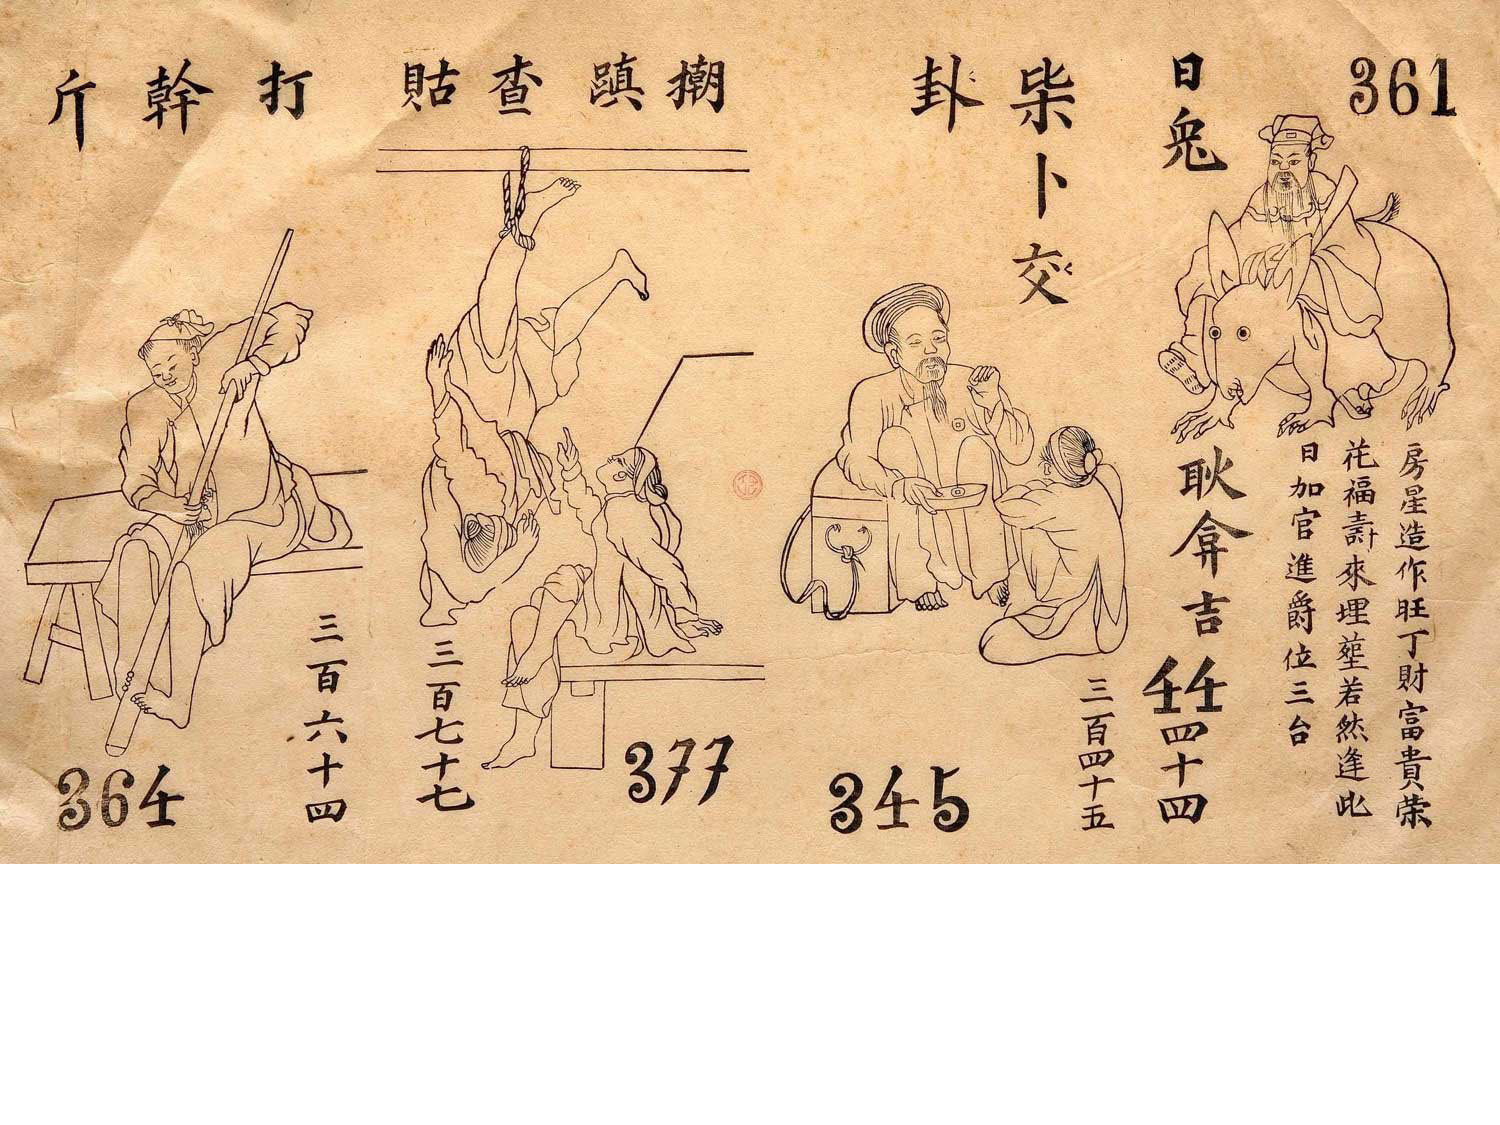 361
日兔
房星造作旺丁財富貴荣
花福壽來埋塟若然逢此
日加官進爵位三台
耿弇吉
四十四
柴卜交
卦
345
三百四十五
擀蹎查贴
377
三百七十七
打幹斤
364
三百六十四